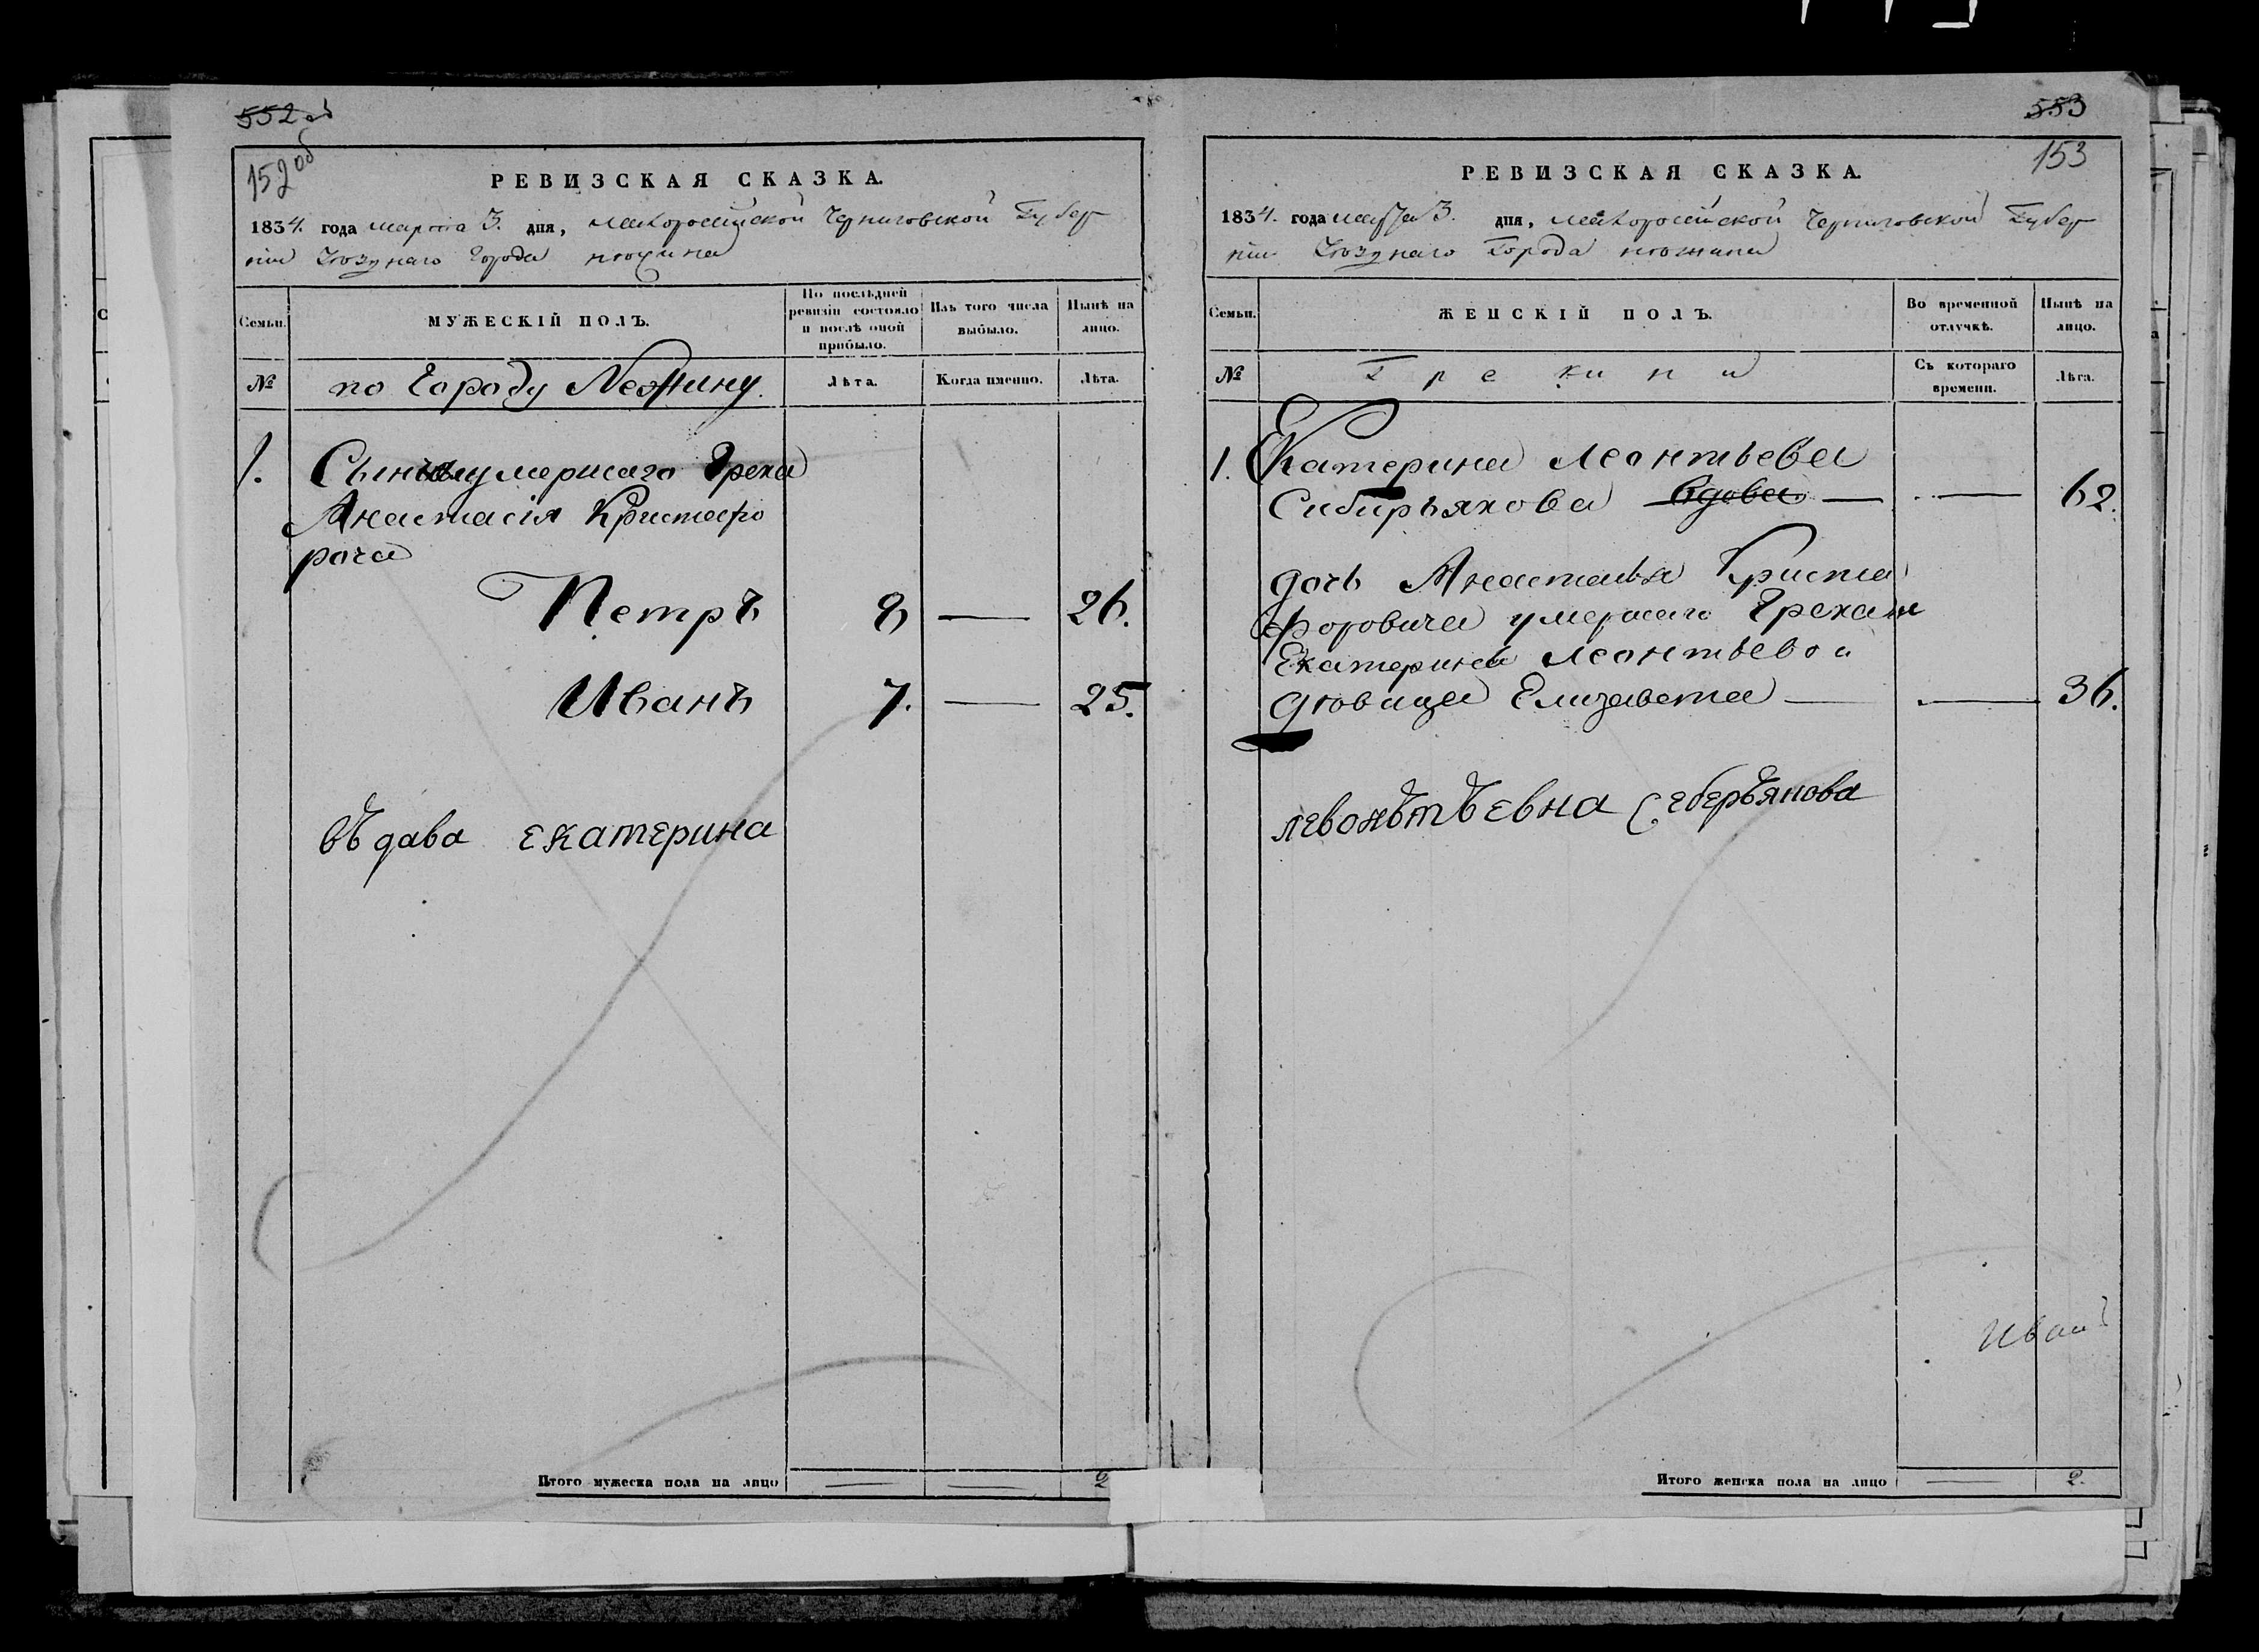 552 об
152 об
РЕВИЗСКАЯ СКАЗКА.
1834. года марта 3. дня, Малоросийской Черниговской Губер
ніи Уезднаго Города Нежина
Семьи.
МУЖЕСКІЙ ПОЛЪ.
По послѣдней ревизіи состояло и послѣ оной прибыло.
Изъ того числа выбыло.
Нынѣ на лицо.
№
по Городу Нежину.
Лѣта.
Когда именно.
Лѣта.
1. Сынъ умершаго Грека
Анастасія Христофо
рача
Петръ 8 — 26.
Иванъ 7. — 25.
въдава екатерина
Итого мужеска пола на лицо — — 2
553
153
РЕВИЗСКАЯ СКАЗКА.
1834. года марта 3. дня, Малоросийской Черниговской Губер
ніи Уезднаго Города Нежина
Семьи.
ЖЕНСКІЙ ПОЛЪ.
Во временной отлучкѣ.
Нынѣ на лицо.
№
Грекини
Съ котораго времени.
Лѣта.
1. Екатерина Леонтьева
Сибирьякова вдова — — 62.
дочь Анастасья Христа
форовича умершаго Грека и
Екатерины Леонтьевой
девица Елизавета — — 36.
левонътъевна Себеръякова
Иван
Итого женска пола на лицо — 2.